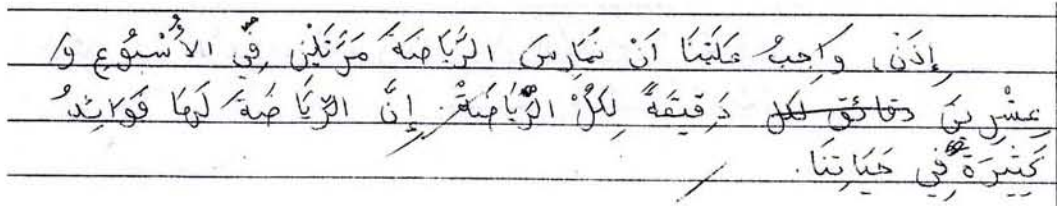 إِذَنْ، وَاجِبُ عَلَيْنَا اَنْ نُمَارِسَ الرِّيَاضَةَ مَرَّتَيْنِ فِي الأُسْبُوْعِ وَ
عِشْرِيْنَ دقائق لكل دَقِيْقَةً لِكُلِّ الرِّيَاضَةْ. إِنَّ الرِّيَاضَةَ لَهَا فَوَائِدُ
كَثِيْرَةٌ فِي حَيَاتِنَا.